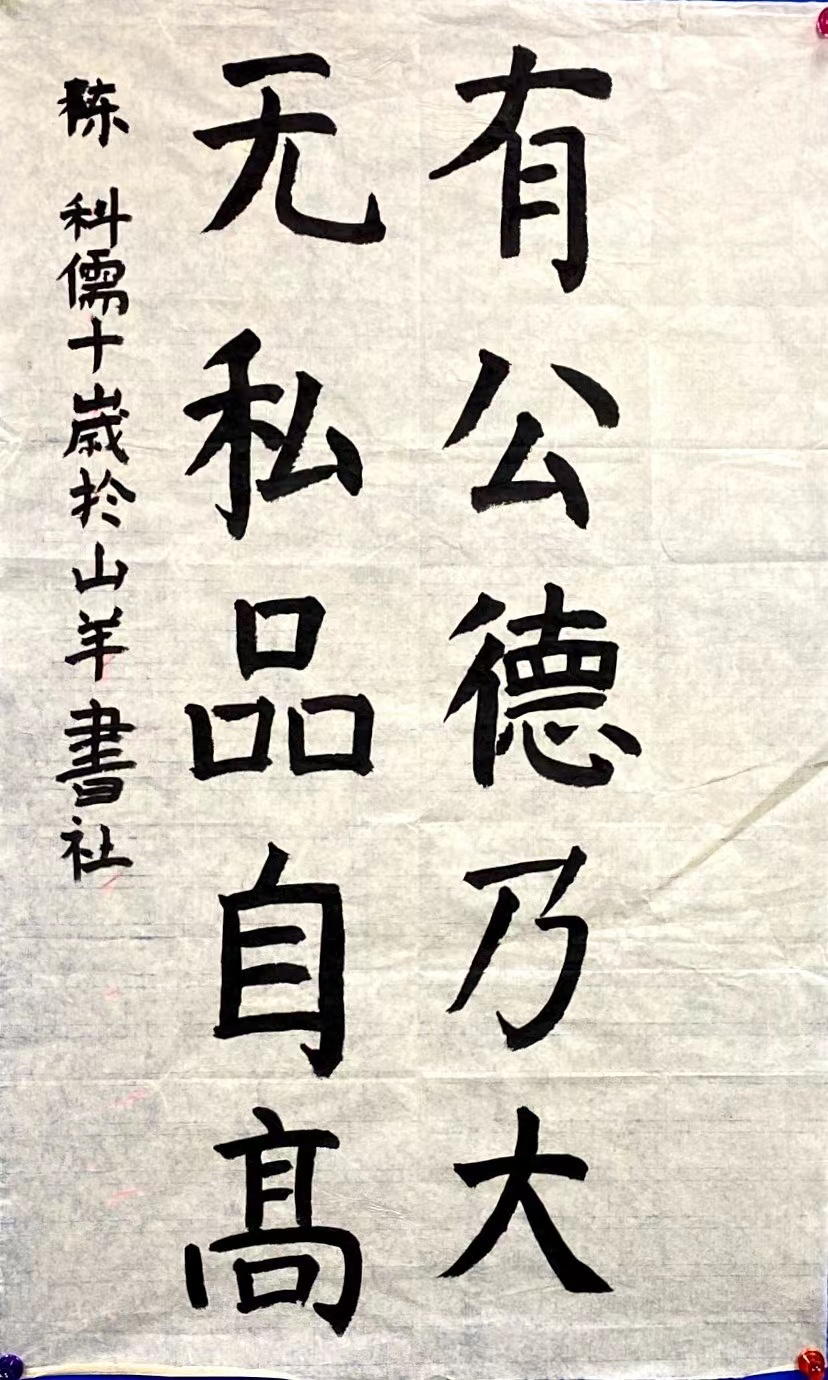 有公德乃大
无私品自髙
陈科儒十歲於山羊書社